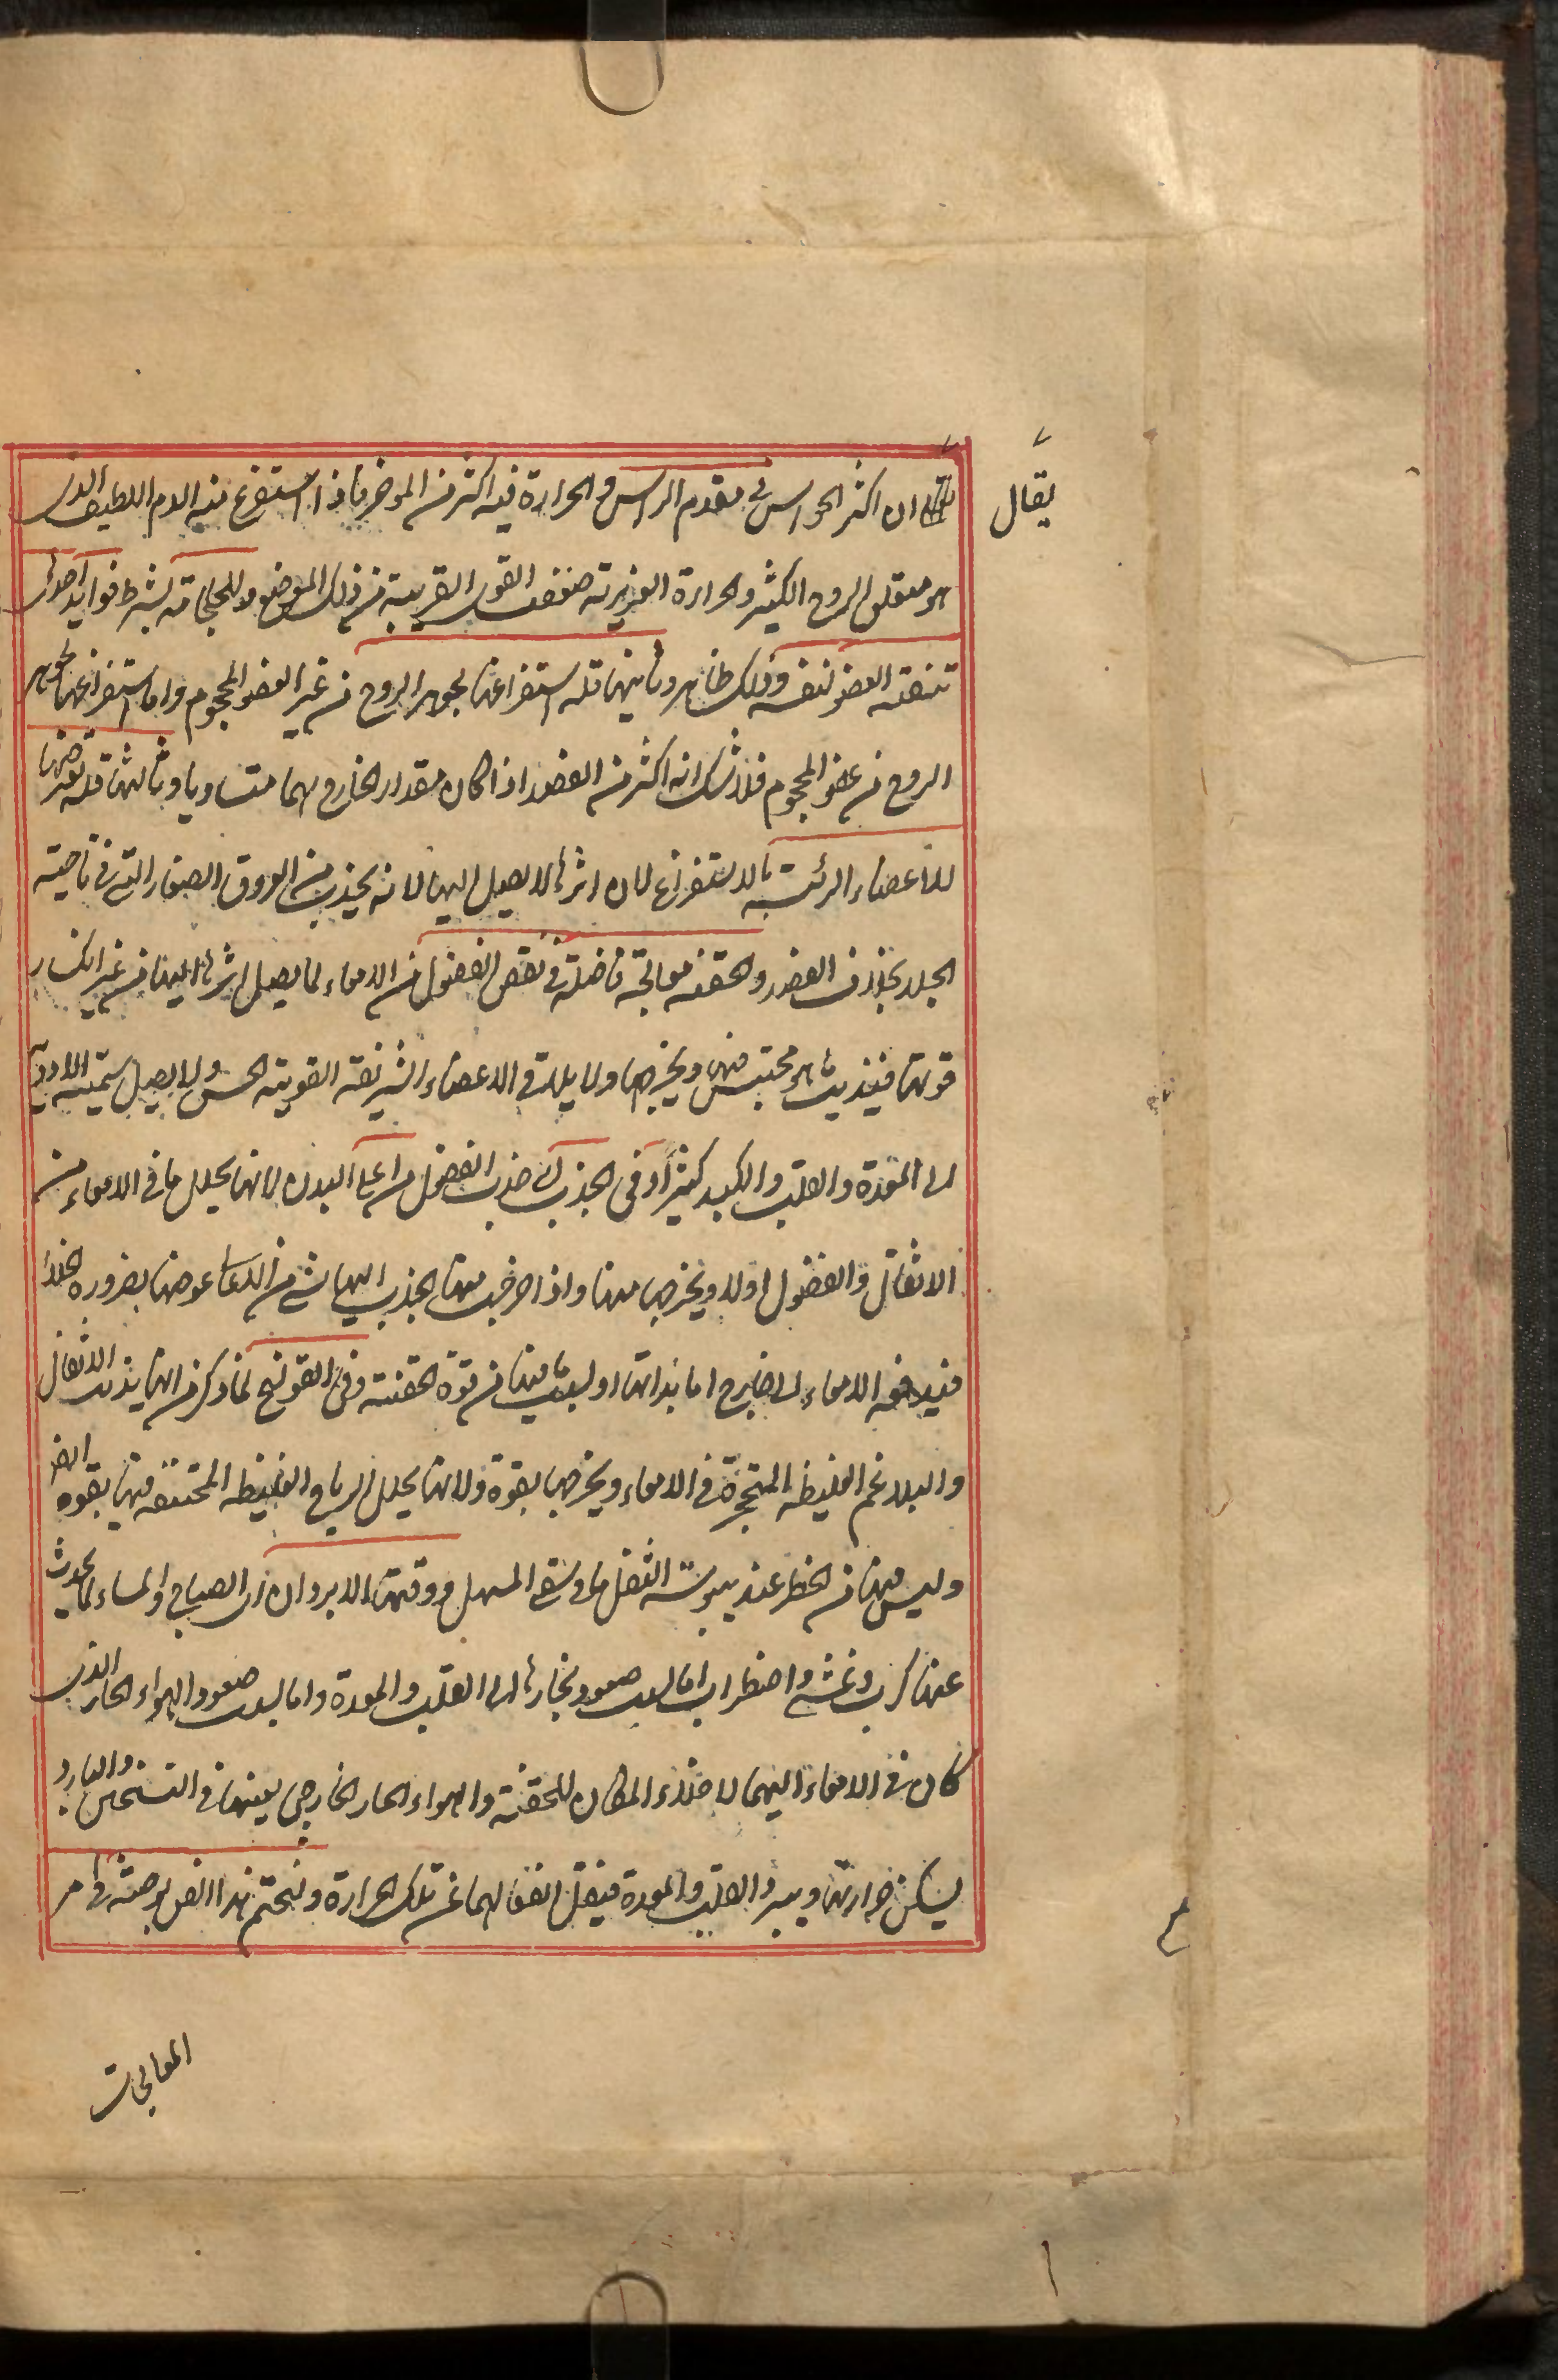 يقال
ان اكثر الحواس فى مقدم الراس والحرارة فيه اكثر من الموخر فاذا استفرغ منه الدم اللطيف الذى
هو متعلق الروح الكثير والحرارة الغزيرية ضعفت القوى القريبة من ذلك الموضع وللحجامة بشرط فوايد احدٰها
تنقية العضو نفسه وذلك ظاهر وثانيها قلة استفراغها لجوهر الروح من غير العضو المحجوم واما استفراغها لجوهر
الروح من عضو المحجوم فلا شك انه اكثر من الفصد اذا كان مقدار الخارج بهما متساويا وثالثها قلة تعرضها
للاعضاء الرئيسية بالاستفراغ لان اثرها لا يصل اليها لانه يجذب من العروق الصغار التى فى ناحية
الجلد بخلاف الفصد والحقنه معالجة فاضلة فى نقص الفضول من الامعاء لما يصل اثرها اليها من غير انكسار
قوتها فيذيب ما هو محتبس فيها ويخرجها ولا يلاقى الاعضاء الشريفة القوية الحس ولا يصل سمية الادوية
الى المعدة والقلب والكبد كثيرًا وفى الجذب اى جذب الفضول من اعالى البدن لانها يحلل ما فى الامعاء من
الاثفال والفضول اولا ويخرجها منها واذا خرجت منها انجذب اليها شى من الاعالى عوضها بضروره الخلاء
فيدفعه الامعاء الى خارج اما بذاتها او لبقايا فيها من قوة الحقنة وفى القولنج لما ذكر من انها يذيب الاثفال
والبلاغم الغليظه المتحجرة فى الامعاء ويخرجها بقوة ولانها يحلل الرياح الغليظه المحتقنه فيها بقوه ايضا
وليس فيها من الخطر عند يبوسة الثفل ما فى سقى المسهل ووقتها الابردان اى الصباح والمساء لما يحدث
عنها كرب وغشى واضطراب اما لسبب صعود بخارها الى القلب والمعدة واما لسبب صعود الهواء الحار الذى
كان فى الامعاء اليهما لاخلاء المكان للحقنة والهواء الحار الخارجى يعينها فى التسخين والبارد
يسكن حرارتها ويبرد القلب والمعدة فيقل انفعالهما عن تلك الحرارة ولنختم هذا الفصل بوصية فى امر
المعالجات